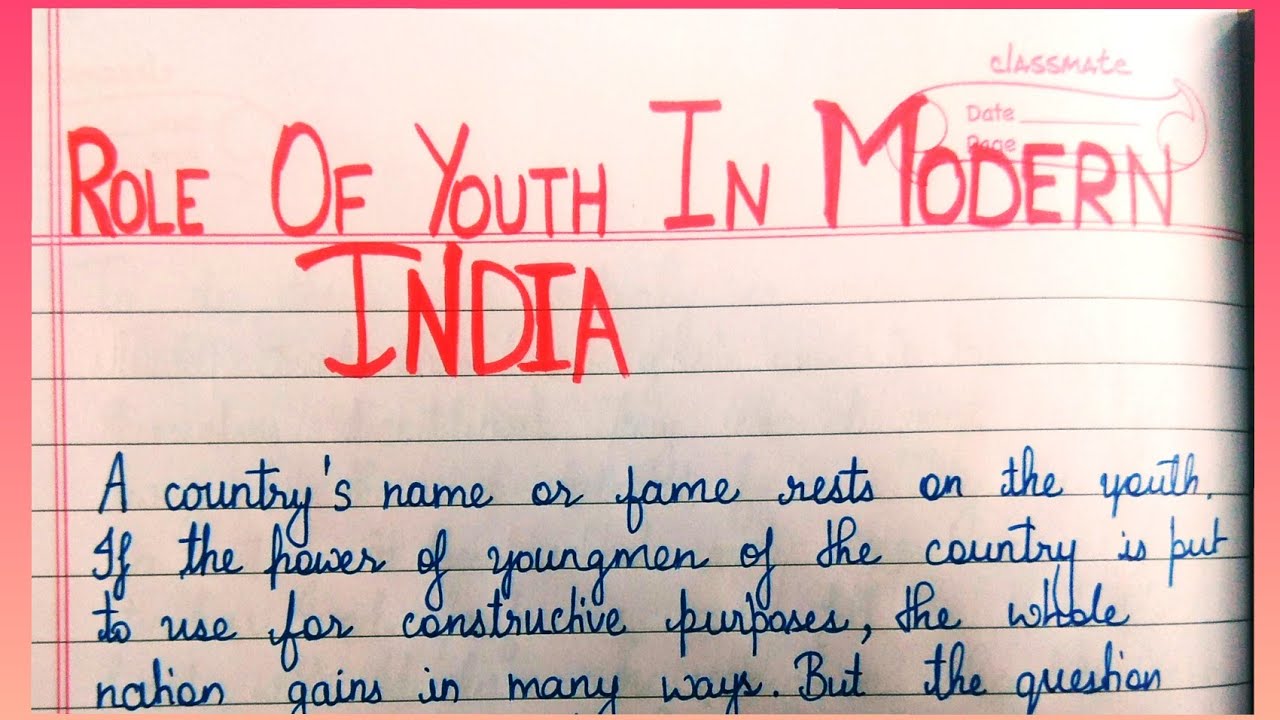 classmate
Date
Page
ROLE OF YOUTH IN MODERN
INDIA
A country's name or fame rests on the youth.
If the power of youngmen of the country is put
to use for constructive purposes, the whole
nation gains in many ways. But the question